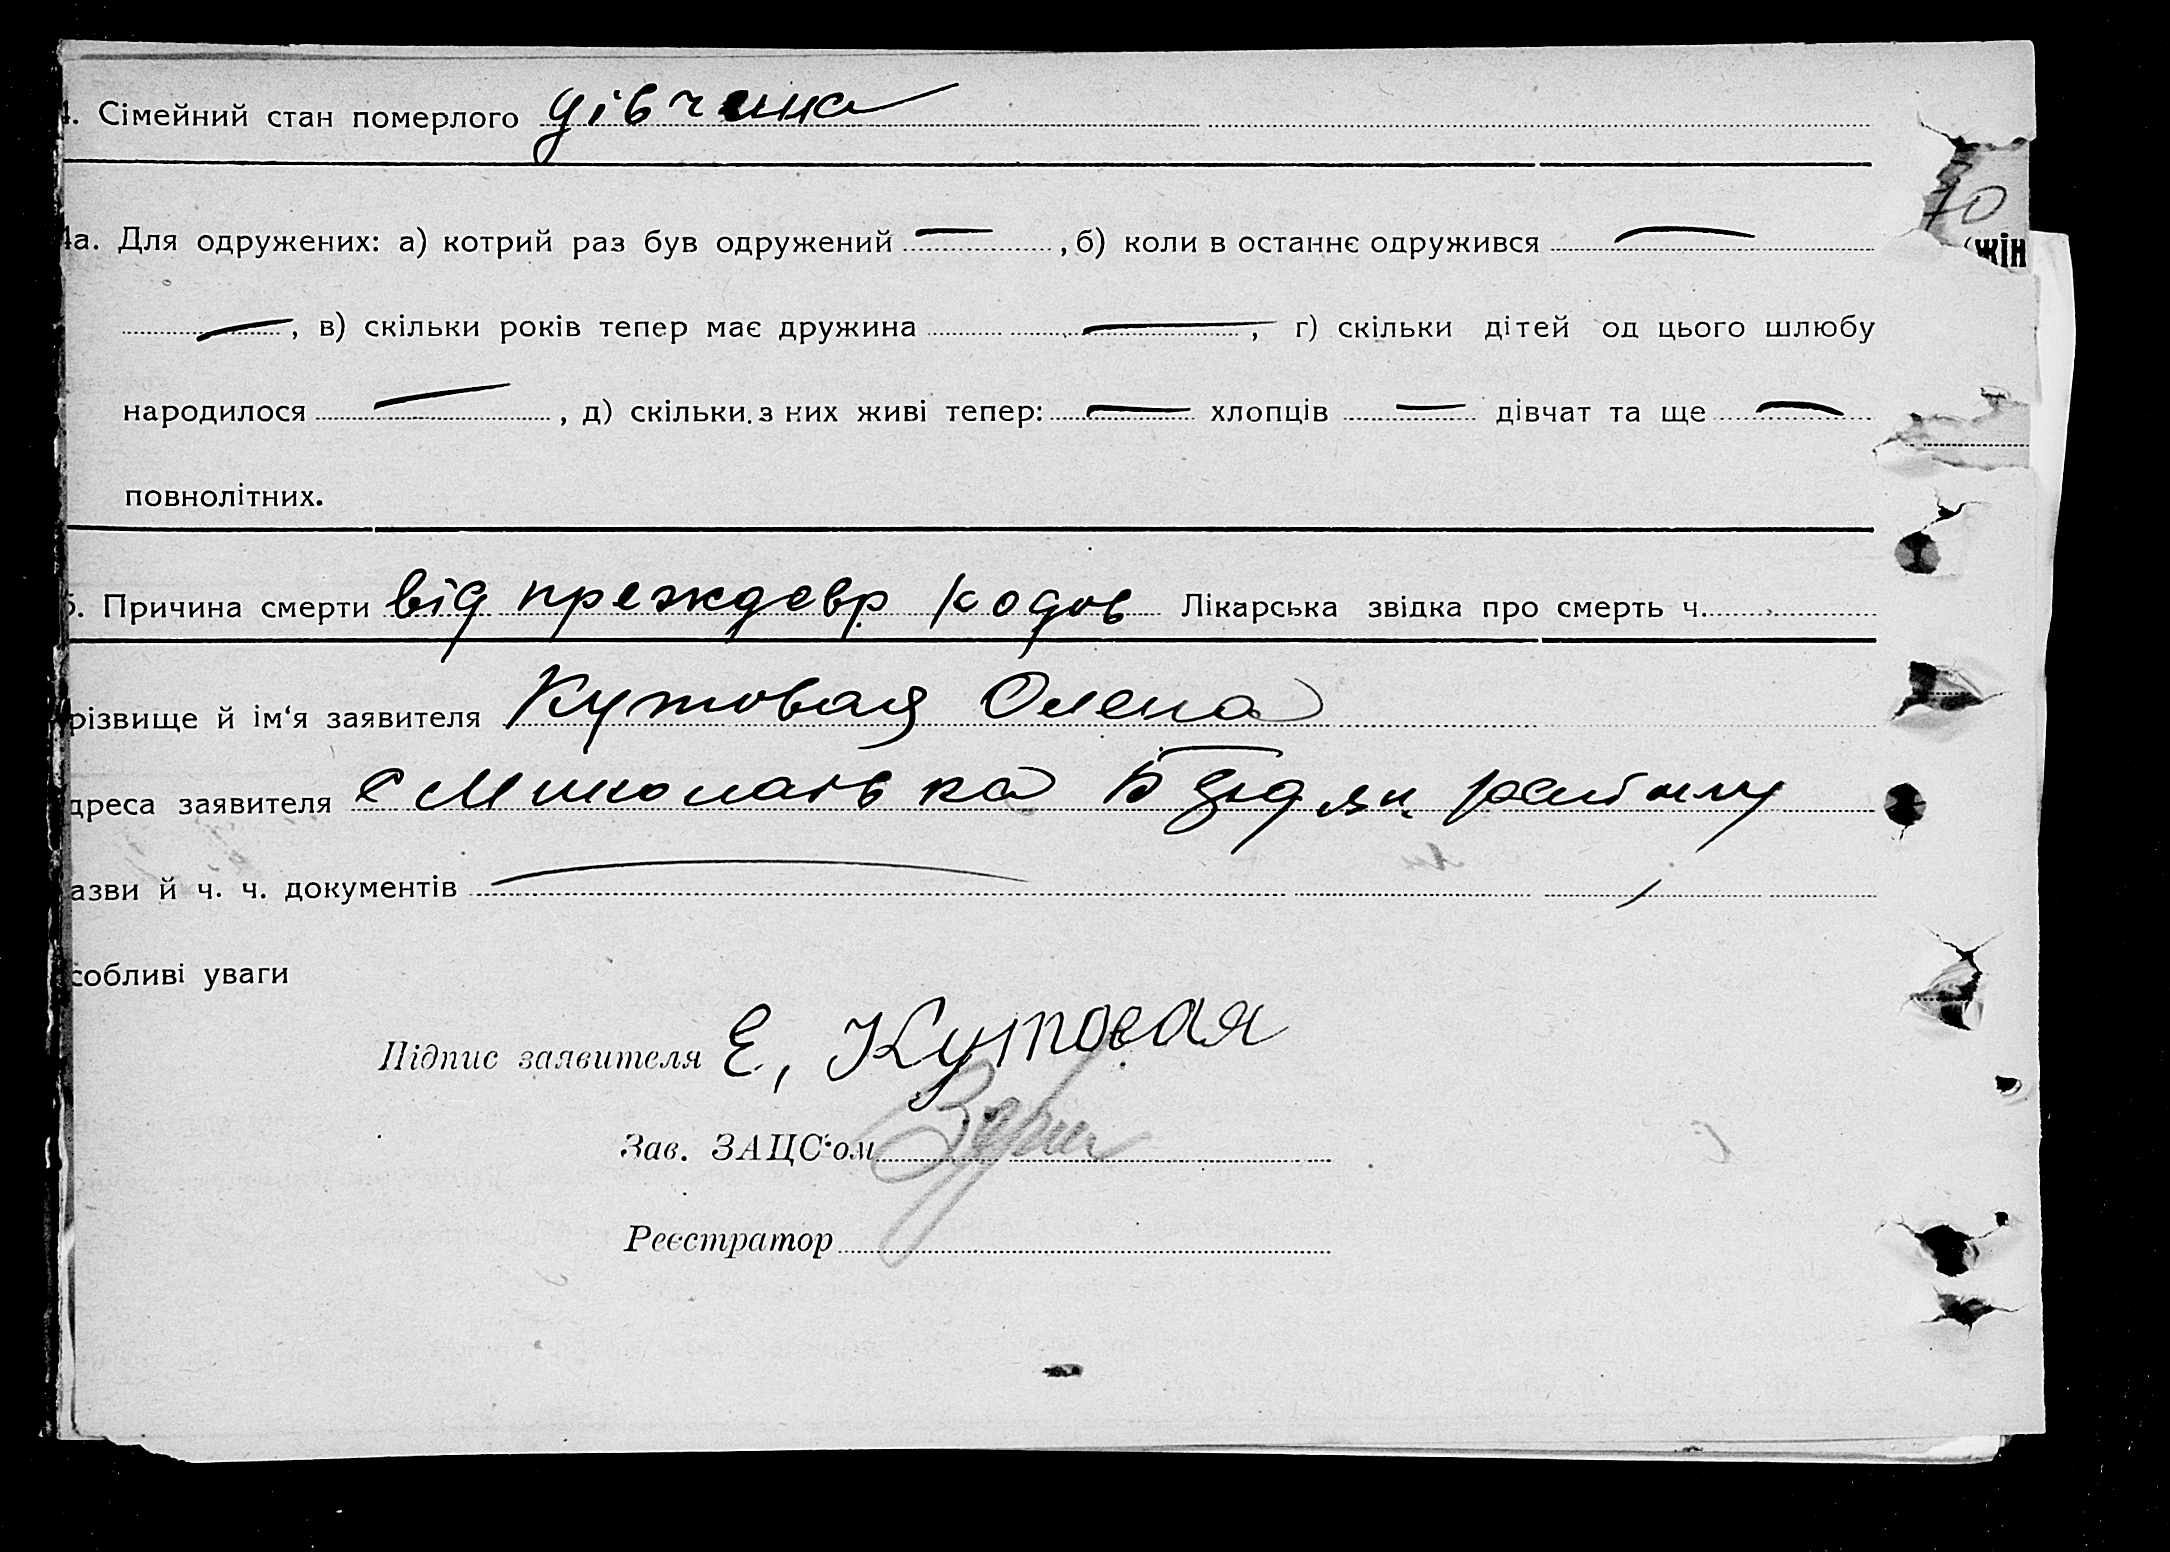 4. Сімейний стан померлого дівчина
70
жін
4а. Для одружених: а) котрий раз був одружений —, б) коли в останнє одружився —
—, в) скільки років тепер має дружина —, г) скільки дітей од цього шлюбу
народилося —, д) скільки з них живі тепер: — хлопців — дівчат та ще —
повнолітних.
5. Причина смерти від преждевр родов Лікарська звідка про смерть ч.
різвище й ім‘я заявителя Кутовая Олена
дреса заявителя с Миколаївка району
азви й ч. ч. документів —
собливі уваги
Підпис заявителя Е, Кутовая
Зав. ЗАЦС‘ом
Реєстратор